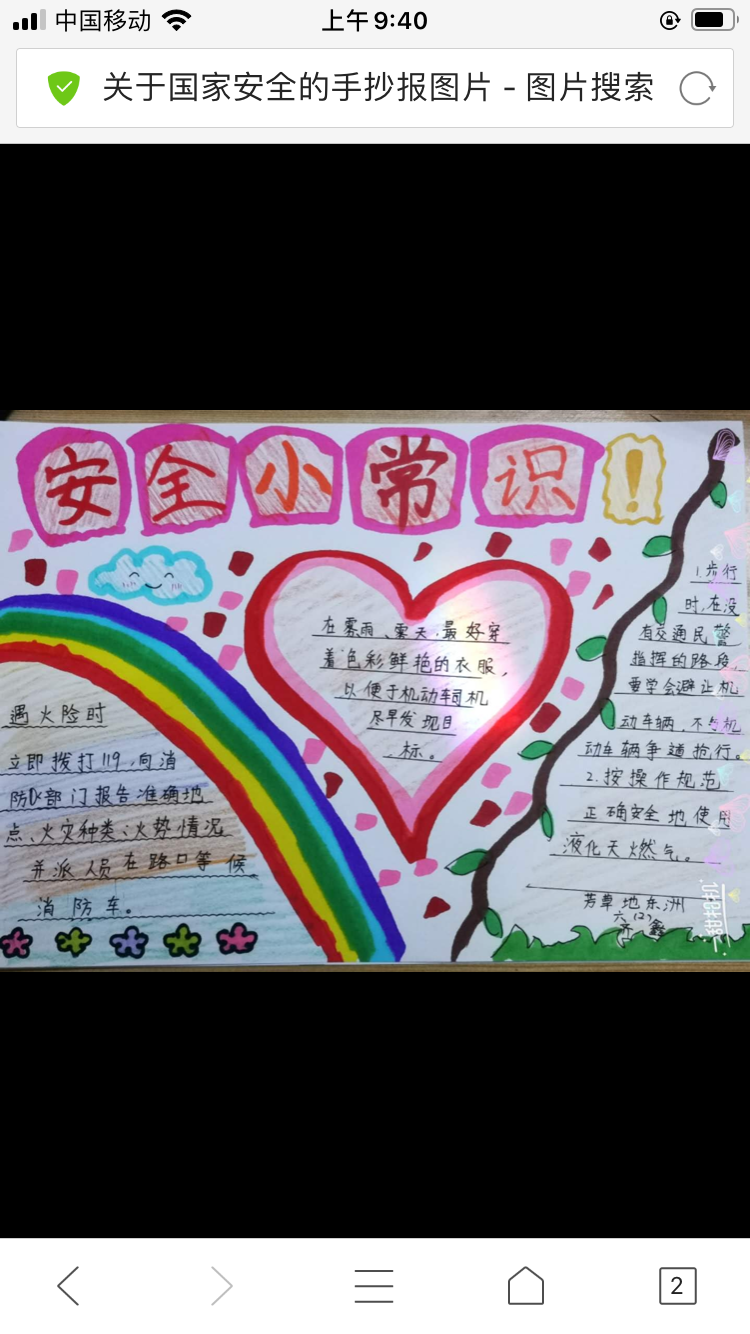 中国移动
上午9:40
关于国家安全的手抄报图片 - 图片搜索
安全小常识!
在雾雨、雪天,最好穿
着色彩鲜艳的衣服,
以便于机动车司机
尽早发现目
标。
遇火险时
立即拨打119,向消
防队部门报告准确地
点、火灾种类、火势情况
并派人员在路口等候
消防车。
1.步行
时,在没
有交通民警
指挥的路段,
要学会避让机
动车辆,不与机
动车辆争道抢行。
2.按操作规范
正确安全地使用
液化天燃气。
芳草地东洲
六(2)
齐鑫
甜相机
2